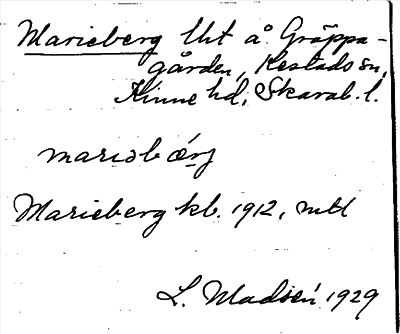 Marieberg lht å Gräppa-
gården, Kestads sn,
Kinne hd, Skarab. l.
mariəbærj
Marieberg kb. 1912, mtl
L. Madsén 1929